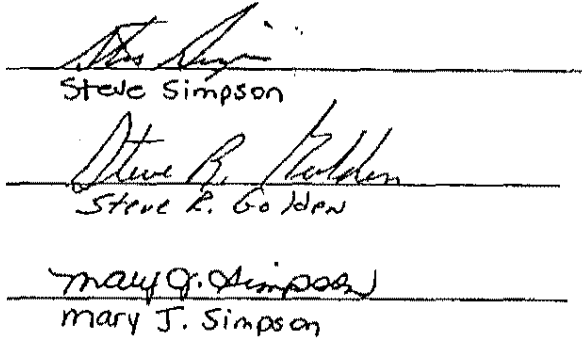 Steve Simpson
Steve Simpson
Steve R. Golden
Steve R. Golden
Mary J. Simpson
Mary J. Simpson